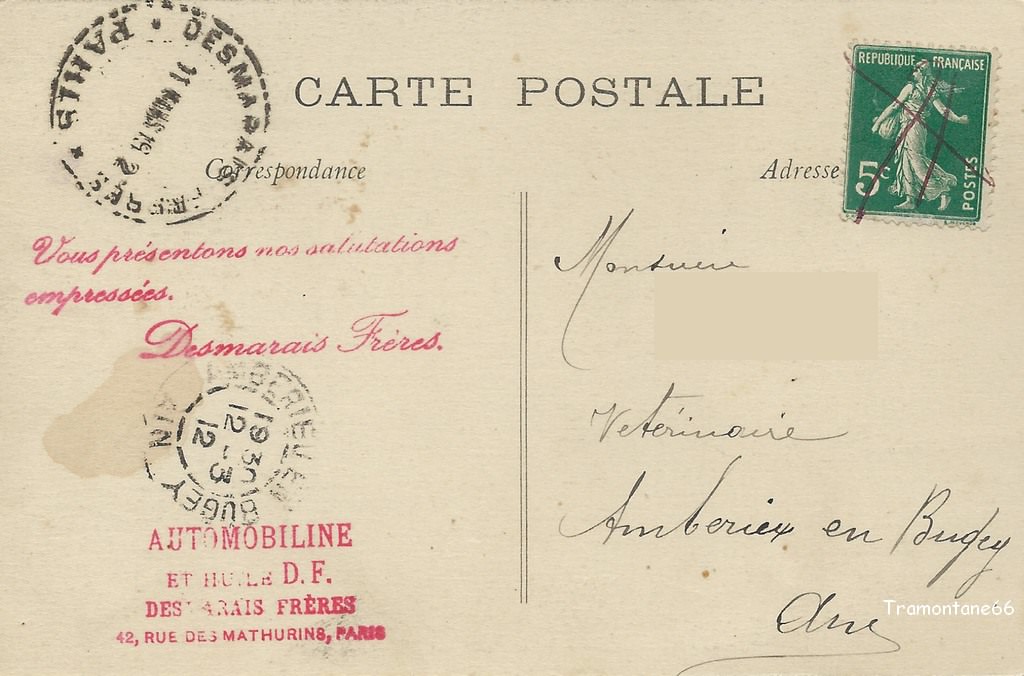 DESMARAIS FRÈRES * PARIS *
11 MARS 1912
CARTE POSTALE
REPUBLIQUE FRANÇAISE
5c
POSTES
Correspondance
Adresse
Vous présentons nos salutations
empressées.
Desmarais Frères.
AMBERIEU EN BUGEY
AIN
1930
12-3
12
Monsieur
Vetérinaire
Amberiex en Bugey
Ain
AUTOMOBILINE
ET HUILE D.F.
DESMARAIS FRÈRES
42, RUE DES MATHURINS, PARIS
Tramontane66